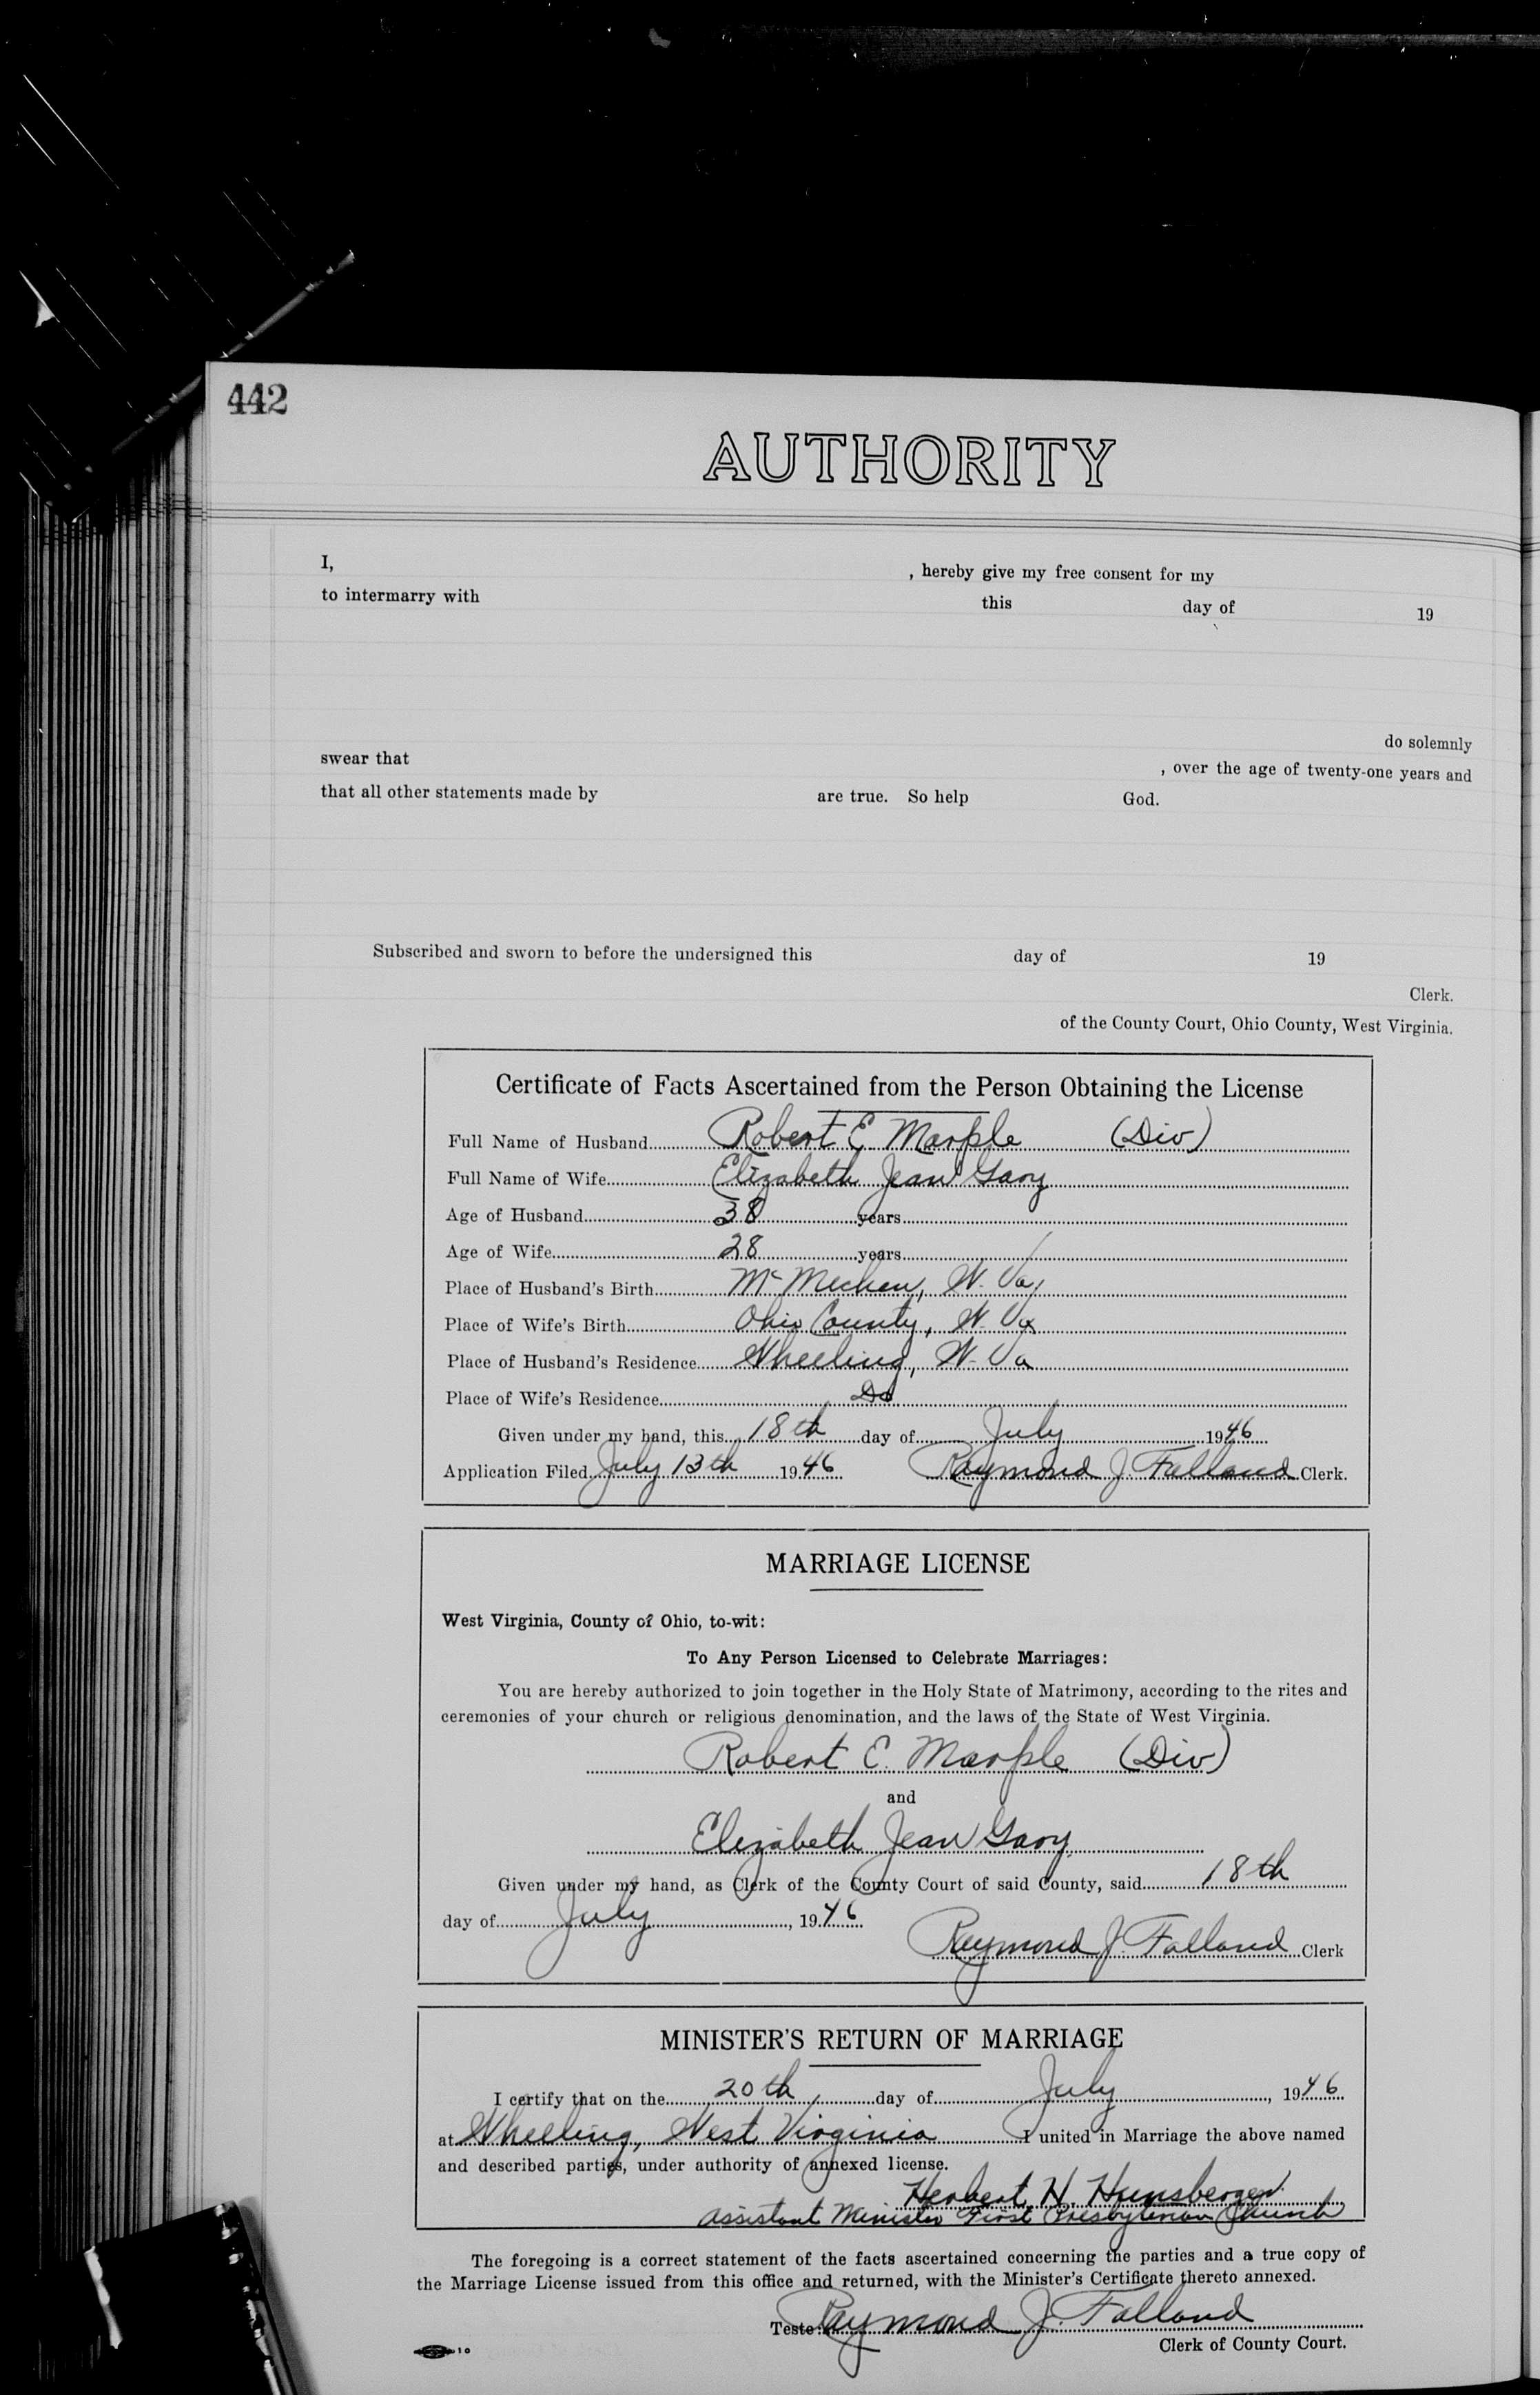 442
AUTHORITY
I, , hereby give my free consent for my
to intermarry with this day of 19
do solemnly
swear that , over the age of twenty-one years and
that all other statements made by are true. So help God.
Subscribed and sworn to before the undersigned this day of 19
Clerk.
of the County Court, Ohio County, West Virginia.
Certificate of Facts Ascertained from the Person Obtaining the License
Full Name of Husband Robert E Marple (Div)
Full Name of Wife Elizabeth Jean Gary
Age of Husband 38 years
Age of Wife 28 years
Place of Husband's Birth McMechen, W. Va
Place of Wife's Birth Ohio County, W. Va
Place of Husband's Residence Wheeling, W. Va
Place of Wife's Residence Do
Given under my hand, this 18th day of July 1946
Application Filed July 13th 1946 Raymond J. Falland Clerk.
MARRIAGE LICENSE
West Virginia, County of Ohio, to-wit:
To Any Person Licensed to Celebrate Marriages:
You are hereby authorized to join together in the Holy State of Matrimony, according to the rites and
ceremonies of your church or religious denomination, and the laws of the State of West Virginia.
Robert E. Marple (Div)
and
Elizabeth Jean Gary
Given under my hand, as Clerk of the County Court of said County, said 18th
day of July, 1946
Raymond J. Falland Clerk
MINISTER'S RETURN OF MARRIAGE
I certify that on the 20th day of July, 1946
at Wheeling, West Virginia I united in Marriage the above named
and described parties, under authority of annexed license.
Herbert H. Hunsberger
Assistant Minister First Presbyterian Church
The foregoing is a correct statement of the facts ascertained concerning the parties and a true copy of
the Marriage License issued from this office and returned, with the Minister's Certificate thereto annexed.
Teste: Raymond J. Falland
Clerk of County Court.